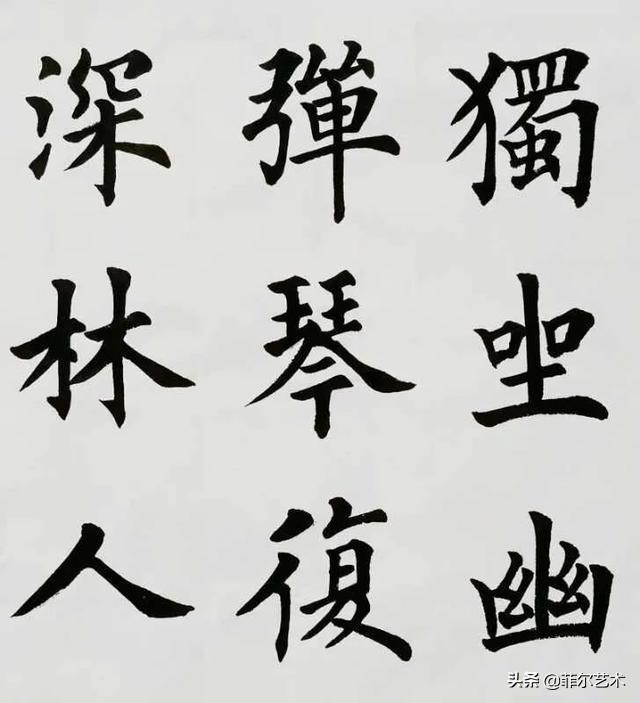 獨坐幽
彈琴復
深林人
头条 @菲尔艺术